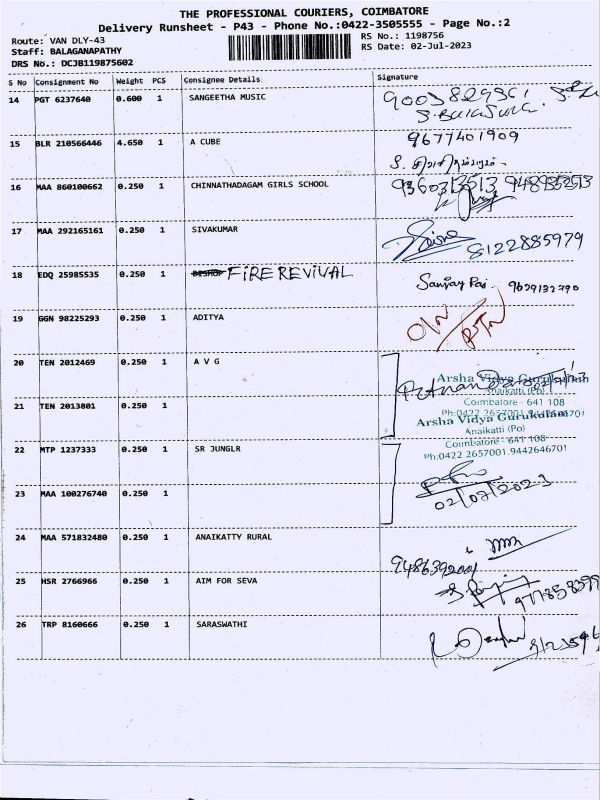 THE PROFESSIONAL COURIERS, COIMBATORE
Delivery Runsheet - P43 - Phone No.:0422-3505555 - Page No.:2
Route: VAN DLY-43
RS No.: 1198756
Staff: BALAGANAPATHY
RS Date: 02-Jul-2023
DRS No.: DCJB119875602
S No Consignment No Weight PCS Consignee Details Signature
14 PGT 6237640 0.600 1 SANGEETHA MUSIC
15 BLR 210566446 4.650 1 A CUBE 9677401909
16 MAA 860100662 0.250 1 CHINNATHADAGAM GIRLS SCHOOL
17 MAA 292165161 0.250 1 SIVAKUMAR 8122885979
18 EDQ 25985535 0.250 1 BISHOP FIRE REVIVAL 9629132790
19 GGN 98225293 0.250 1 ADITYA
20 TEN 2012469 0.250 1 A V G
Arsha Vidya Gurukulam
Anaikatti (Po)
Coimbatore - 641 108
21 TEN 2013801 0.250 1
Ph:0422 2657001.9442646701
Arsha Vidya Gurukulam
Anaikatti (Po)
Coimbatore - 641 108
22 MTP 1237333 0.250 1 SR JUNGLR
Ph:0422 2657001.9442646701
23 MAA 100276740 0.250 1
02/07/2023
24 MAA 571832480 0.250 1 ANAIKATTY RURAL
9486392001
25 HSR 2766966 0.250 1 AIM FOR SEVA
26 TRP 8160666 0.250 1 SARASWATHI